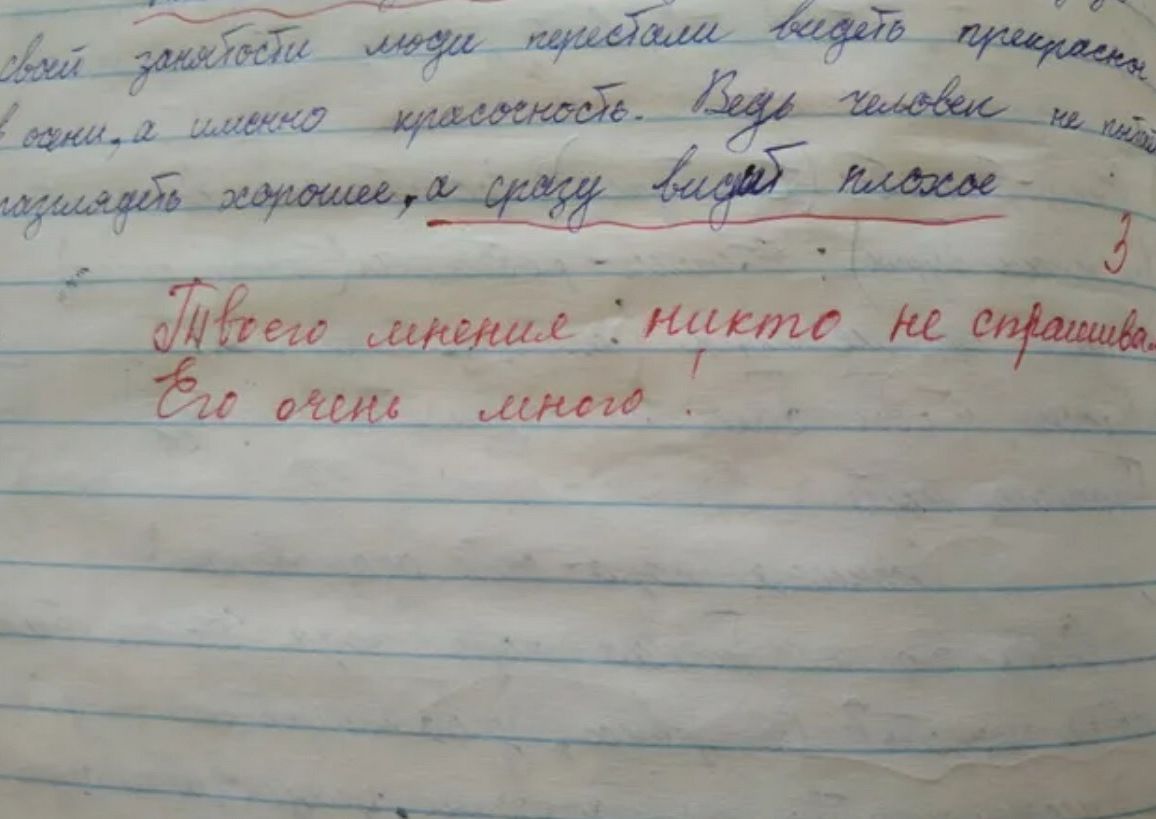 своей занятости люди перестали видеть прекрасно
в осени, а именно красочность. Ведь человек не пытай
разглядеть хорошее, а сразу видит плохое
3
Твоего мнения никто не спрашива
Его очень много!